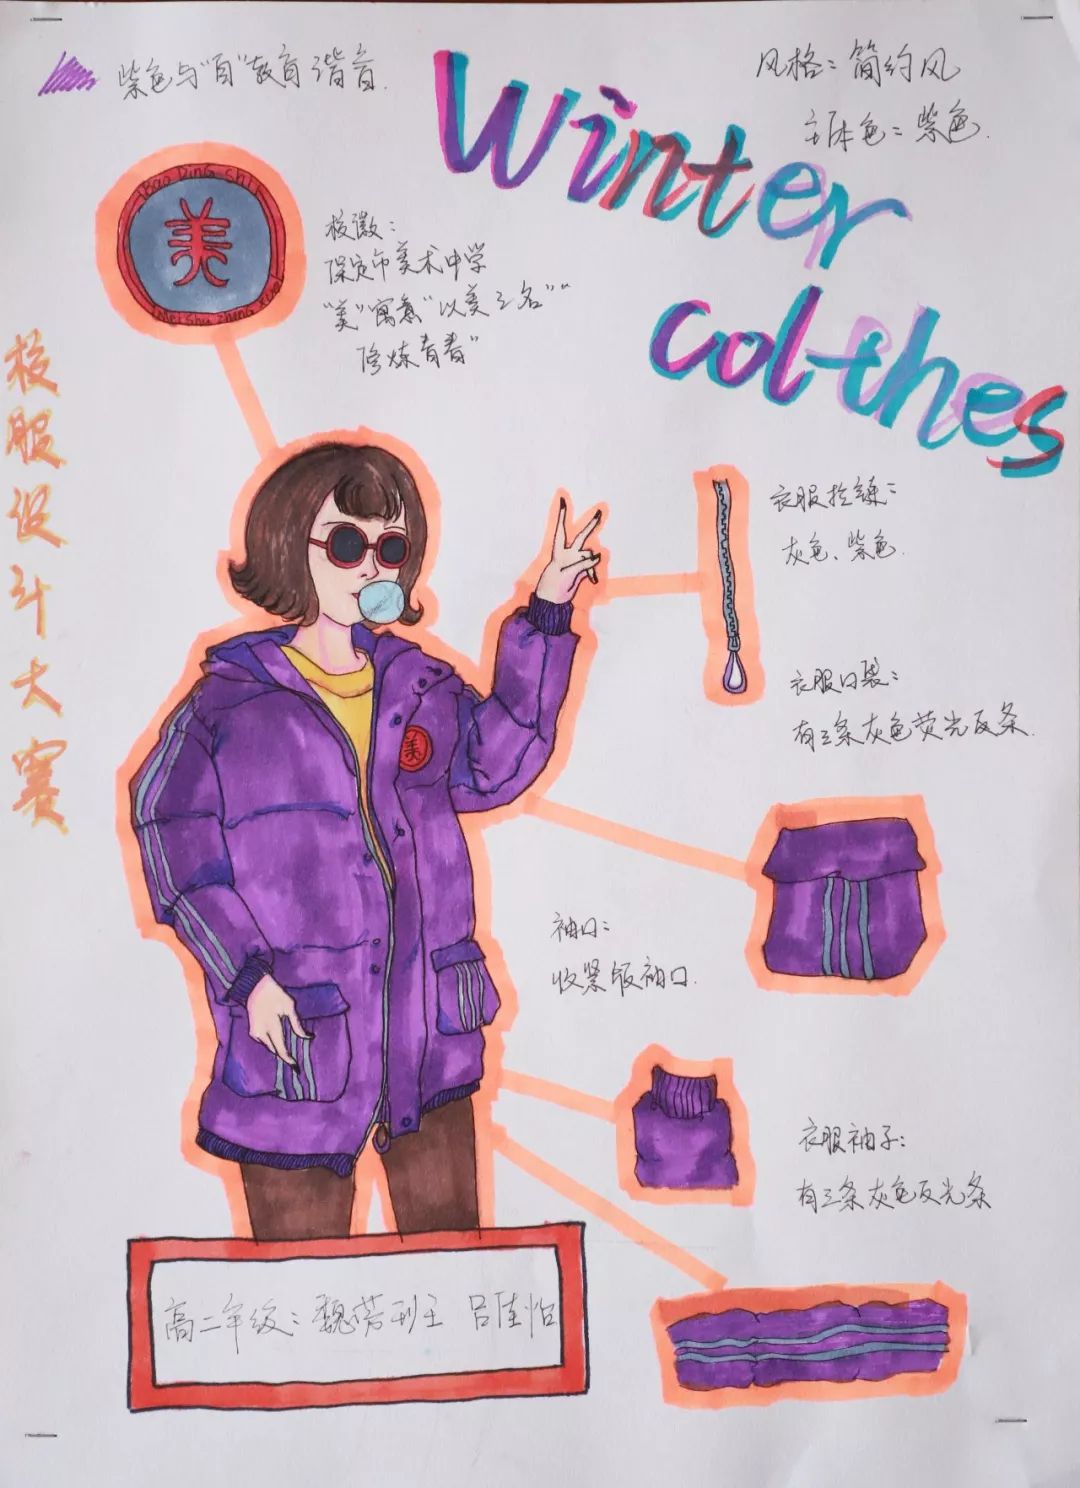 紫色与"自"教育谐音.
Winter
colthes
风格：简约风
主体色：紫色.
Bao Ding Shi
美
Mei Shu Zhong Xue
校徽：
保定市美术中学
"美"寓意"以美之名""
修炼青春"
校服设计大赛
衣服拉链：
灰色、紫色.
衣服口袋：
有三条灰色荧光反条.
美
袖口：
收紧版袖口.
衣服袖子：
有三条灰色反光条
高二年级：魏芳 吕佳怡